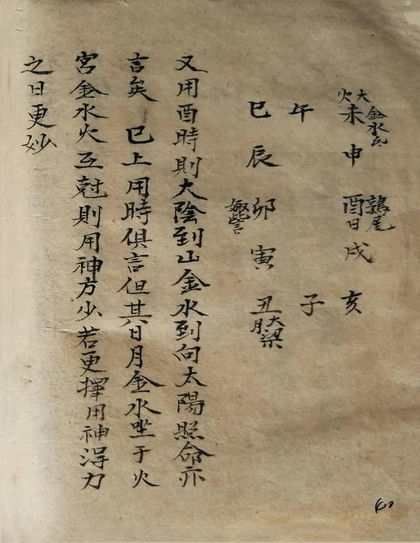 大火
金水炁
未申酉日戌亥
鶉尾
午子
巳辰卯寅丑月
大梁
娵訾
又用酉時則大陰到山金水到向太陽照命亦
言矣 巳上用時俱言但其日月金水坐于火
宮金水火互尅則用神方少若更擇用神得力
之日更妙